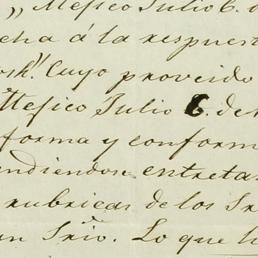 " Mejico Julio 6. d
cha á la respuest
osh". Cuyo proveido
Mejico Julio 6. de
forma y conform
ndiendose entreta
rubricas de los Sr
un Srio. Lo que